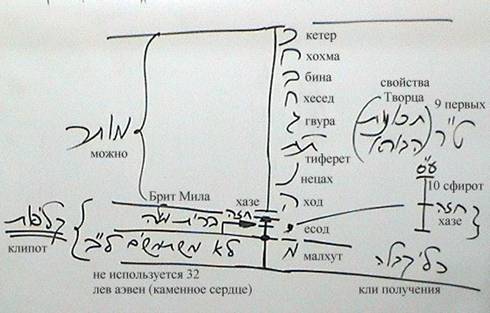 כ кетер
ח хохма
ב бина
свойства
ח хесед
Творца
9 первых
ג гвура
תכונות
ט"ר
מותר
הבורא
ת"ת
можно
тиферет
נ нецах
ע"ס
Брит Мила
хазе
ה ход
10 сфирот
ברית מילה
חזה
חזה
קליפות
есод
хазе
клипот
לא משתמשים ל"ב
מ малхут
כלי קבלה
не используется 32
лев аэвен (каменное сердце)
кли получения